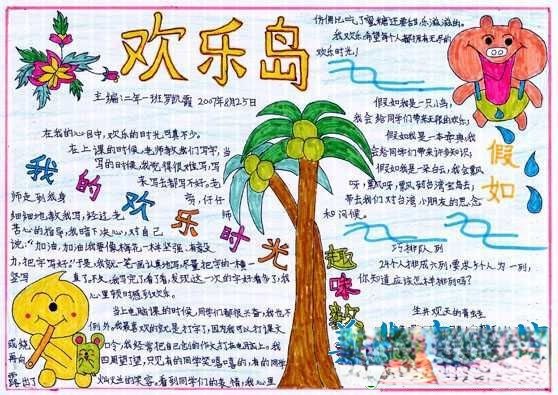 欢乐岛
主编:二年一班罗凯霞 2007年8月25日
我的欢乐时光
在我的心目中,欢乐的时光可真不少。
在上课的时候,老师教我们写字,当
写的时候,我觉得很难写,写
来写去都写不好。老
师走到我身
细细地教我写,经过老
苦心的指导,我暗下决心,对自己
说:"加油,加油我要像梅花一样坚强,有毅
力,把字写好!"于是,我就一笔一画认真地写,尽量把字的横一
竖写直了。不久,我写完了看了看,发现这一次的字好看多了,我
心里顿时感到欢乐。
当上电脑课的时候,同学们都很兴奋,我也不
例外。我最喜欢的就是打字了,因为我可以打课文
或绕口令,我经常把自己创的作文打在电脑上。我
再向四周望了望,只见有的同学笑嘻嘻的,有的同学
露出了灿烂的笑容。看到同学们的表情,我心里
仿佛比吃了蜜糖还要甜,乐滋滋的。
我欢乐,希望每个人都拥有无尽的
欢乐时光!
假如
假如我是一只小鸟,
我会给同学们带来无限的欢乐;
假如我是一本字典,我
会给同学们带来许多知识;
假如我是一朵白云,我会飘
呀,飘呀,飘,飘到台湾宝岛去,
带去我们对台湾小朋友的思念
和问候。
趣味数
巧排队列
24个人排成六列,要求5个人为一列,
你知道应该怎样排列吗?
生井观天的青蛙